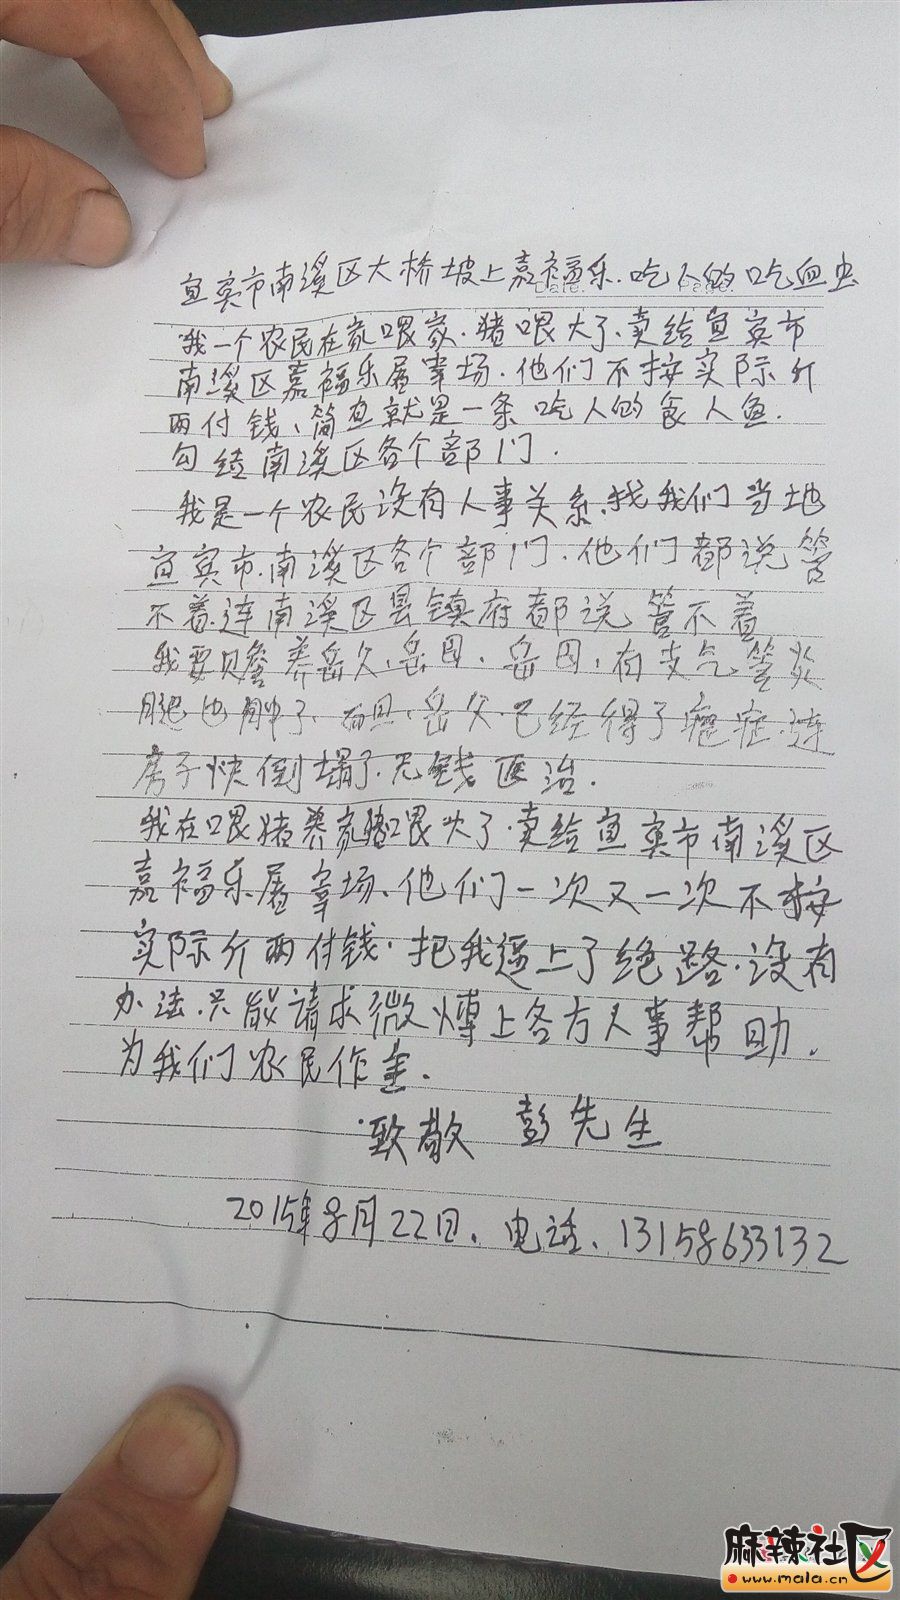 宜宾市南溪区大桥坡上嘉福乐.吃人的吃血虫
我一个农民在家喂家.猪喂大了.卖给宜宾市
南溪区嘉福乐屠宰场.他们不按实际斤
两付钱、简直就是一条吃人的食人鱼.
勾结南溪区各个部门.
我是一个农民没有人事关系.找我们当地
宜宾市.南溪区各个部门.他们都说管
不着.连南溪区县镇府都说管不着
我要赡养岳父、岳母、岳母、有支气管炎
腿也肿了、而且、岳父.已经得了癌症.连
房子快倒塌了.无钱医治.
我在喂猪养家猪喂大了.卖给宜宾市南溪区
嘉福乐屠宰场、他们一次又一次不按
实际斤两付钱.把我逼上了绝路.没有
办法.只能请求微博上各方人事帮助.
为我们农民作主.
致敬 彭先生
2015年8月22日.电话、13158633132
麻辣社区
www.mala.cn